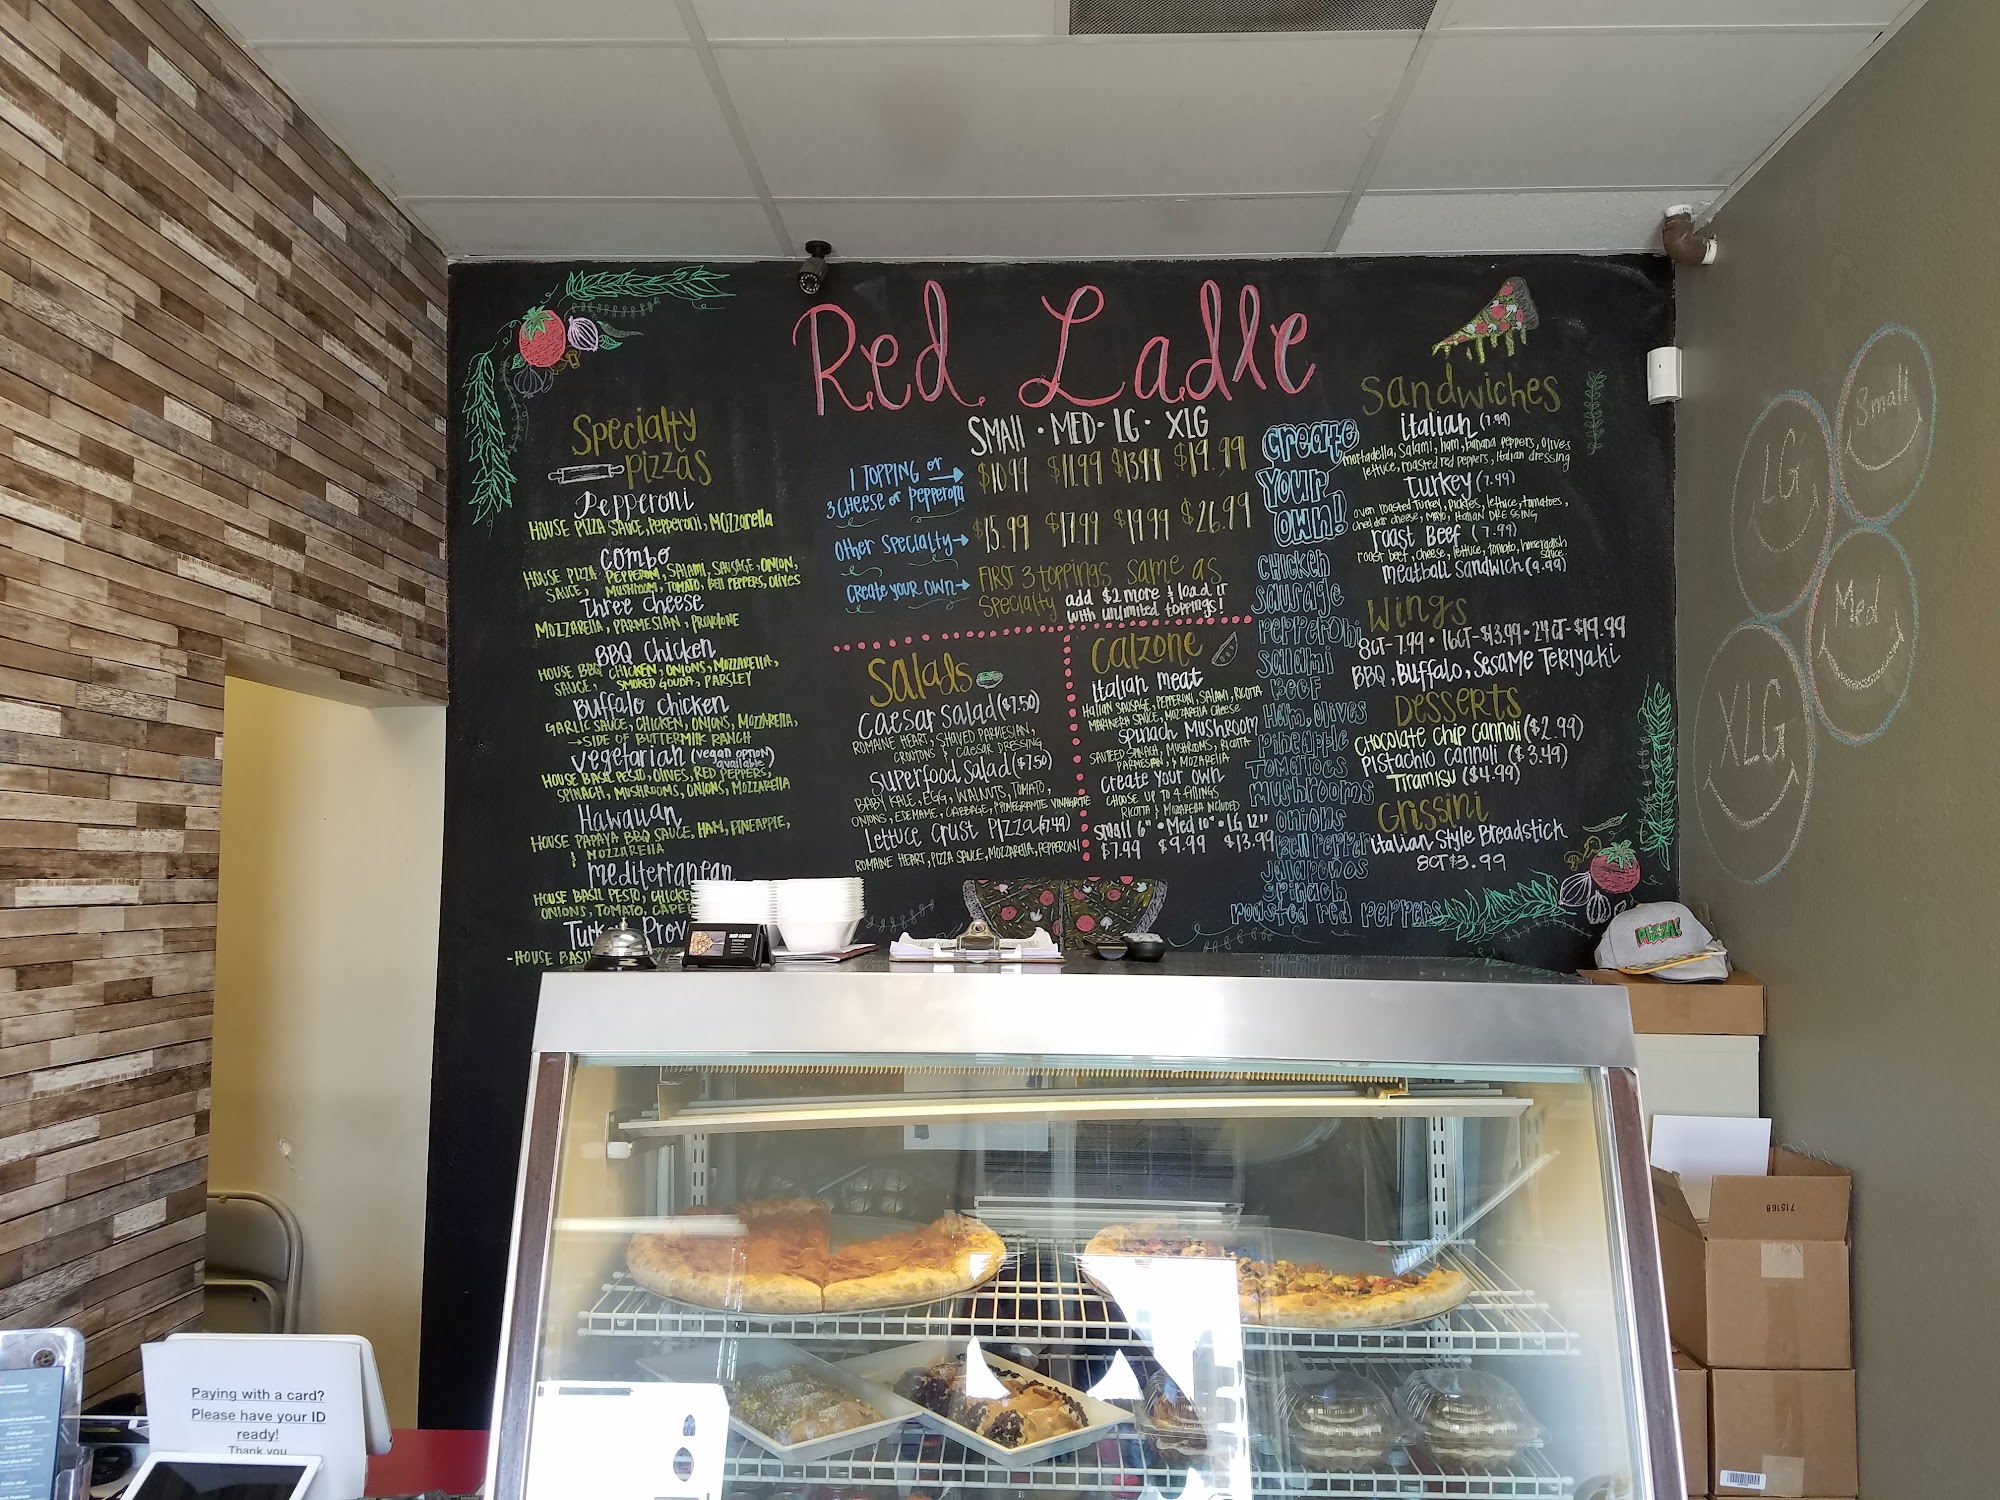 Red Ladle
Specialty
pizzas
Pepperoni
HOUSE PIZZA SAUCE, Pepperoni, MOZZarella
Combo
HOUSE PIZZA SAUCE, PEPPERONI, SALAMI, SAUSAGE, ONION,
MUSHROOM, TOMATO, BELL PEPPERS, OLIVES
Three Cheese
MOZZARELLA, PARMESIAN, PROVOLONE
BBQ Chicken
HOUSE BBQ SAUCE, CHICKEN, ONIONS, MOZZARELLA,
SMOKED GOUDA, PARSLEY
Buffalo Chicken
GARLIC SAUCE, CHICKEN, ONIONS, MOZZARELLA,
→SIDE OF BUTTERMILK RANCH
Vegetarian (vegan option available)
HOUSE BASIL PESTO, OLIVES, RED PEPPERS,
SPINACH, MUSHROOMS, ONIONS, MOZZARELLA
Hawaiian
HOUSE PAPAYA BBQ SAUCE, HAM, PINEAPPLE,
& MOZZARELLA
Mediterranean
HOUSE BASIL PESTO, CHICKE
ONIONS, TOMATO, CAPE
Turkey Prov
-HOUSE BASIL
SMAll · MED· LG · XLG
1 TOPPING or →
3 CHEESE or Pepperoni
$10.99 $11.99 $13.99 $19.99
Other Specialty→
$15.99 $17.99 $19.99 $26.99
Create your own→
FIRST 3 toppings same as
Specialty add $2 more & load it
with unlimited toppings!
Salads
Caesar Salad ($7.50)
ROMAINE HEART, SHAVED PARMESIAN,
CROUTONS & CAESAR DRESSING
Superfood Salad ($7.50)
BABY KALE, EGG, WALNUTS, TOMATO,
ONIONS, EDEMAME, CABBAGE, & POMEGRANITE VINAIGRATTE
Lettuce Crust Pizza (7.49)
ROMAINE HEART, PIZZA SAUCE, MOZZARELLA, PEPPERONI
Calzone
Italian Meat
ITALIAN SAUSAGE, PEPPERONI, SALAMI, RICOTTA
MARINERA SAUCE, MOZZARELLA CHEESE
Spinach Mushroom
SAUTEED SPINACH, MUSHROOMS, RICOTTA
PARMESIAN, & MOZARELLA
Create Your Own
CHOOSE UP TO 4 FILLINGS
RICOTTA & MOZARELLA INCLUDED
Small 6" • Med 10" • LG 12"
$7.99 $9.99 $13.99
Create
Your
Own!
Chicken
Sausage
Pepperoni
Salami
Beef
Ham, olives
Pineapple
Tomatoes
Mushrooms
Onions
Bell Pepper
Jalapenos
Spinach
Roasted red peppers
Sandwiches
Italian (7.99)
mortadella, Salami, ham, banana peppers, olives
lettuce, roasted red peppers, Italian dressing
Turkey (7.99)
oven roasted Turkey, pickles, lettuce, tomatoes,
Cheddar cheese, MAYO, Italian DRESSING
Roast Beef (7.99)
roast beef, cheese, lettuce, tomato, horseradish
sauce
Meatball Sandwich (9.99)
Wings
8CT-7.99 • 16CT-$13.99 • 24CT-$19.99
BBQ, Buffalo, Sesame Teriyaki
Desserts
Chocolate Chip Cannoli ($2.99)
Pistachio Cannoli ($3.49)
Tiramisu ($4.99)
Grissini
Italian Style Breadstick
8CT $3.99
Small
LG
Med
XLG
PIZZA!
RED LADLE
715168
Paying with a card?
Please have your ID
ready!
Thank you